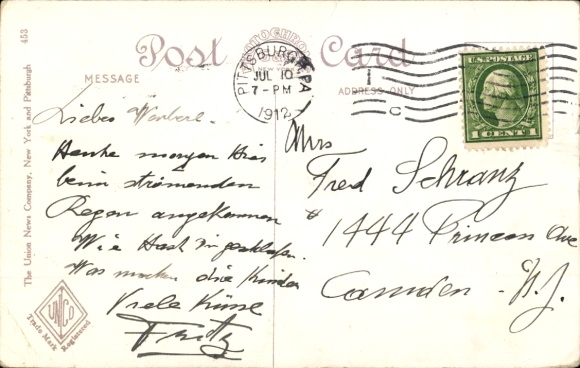 453
The Union News Company, New York and Pittsburgh
Post Card
PHOTOCHROM
NEW YORK
MESSAGE
ADDRESS ONLY
PITTSBURGH, PA
JUL 10
7-PM
1912
1
C
U.S. POSTAGE
1 CENT 1
Liebes
Heute morgen hier
beim strömenden
Regen angekommen
Wie Hast Dn geschlafen.
Was machen die Kinder
Viele Küsse
Fritz
Mrs
Fred Schranz
# 1444 Princeon Ave
Camden - N.J.
UNCO
Trade Mark Registered